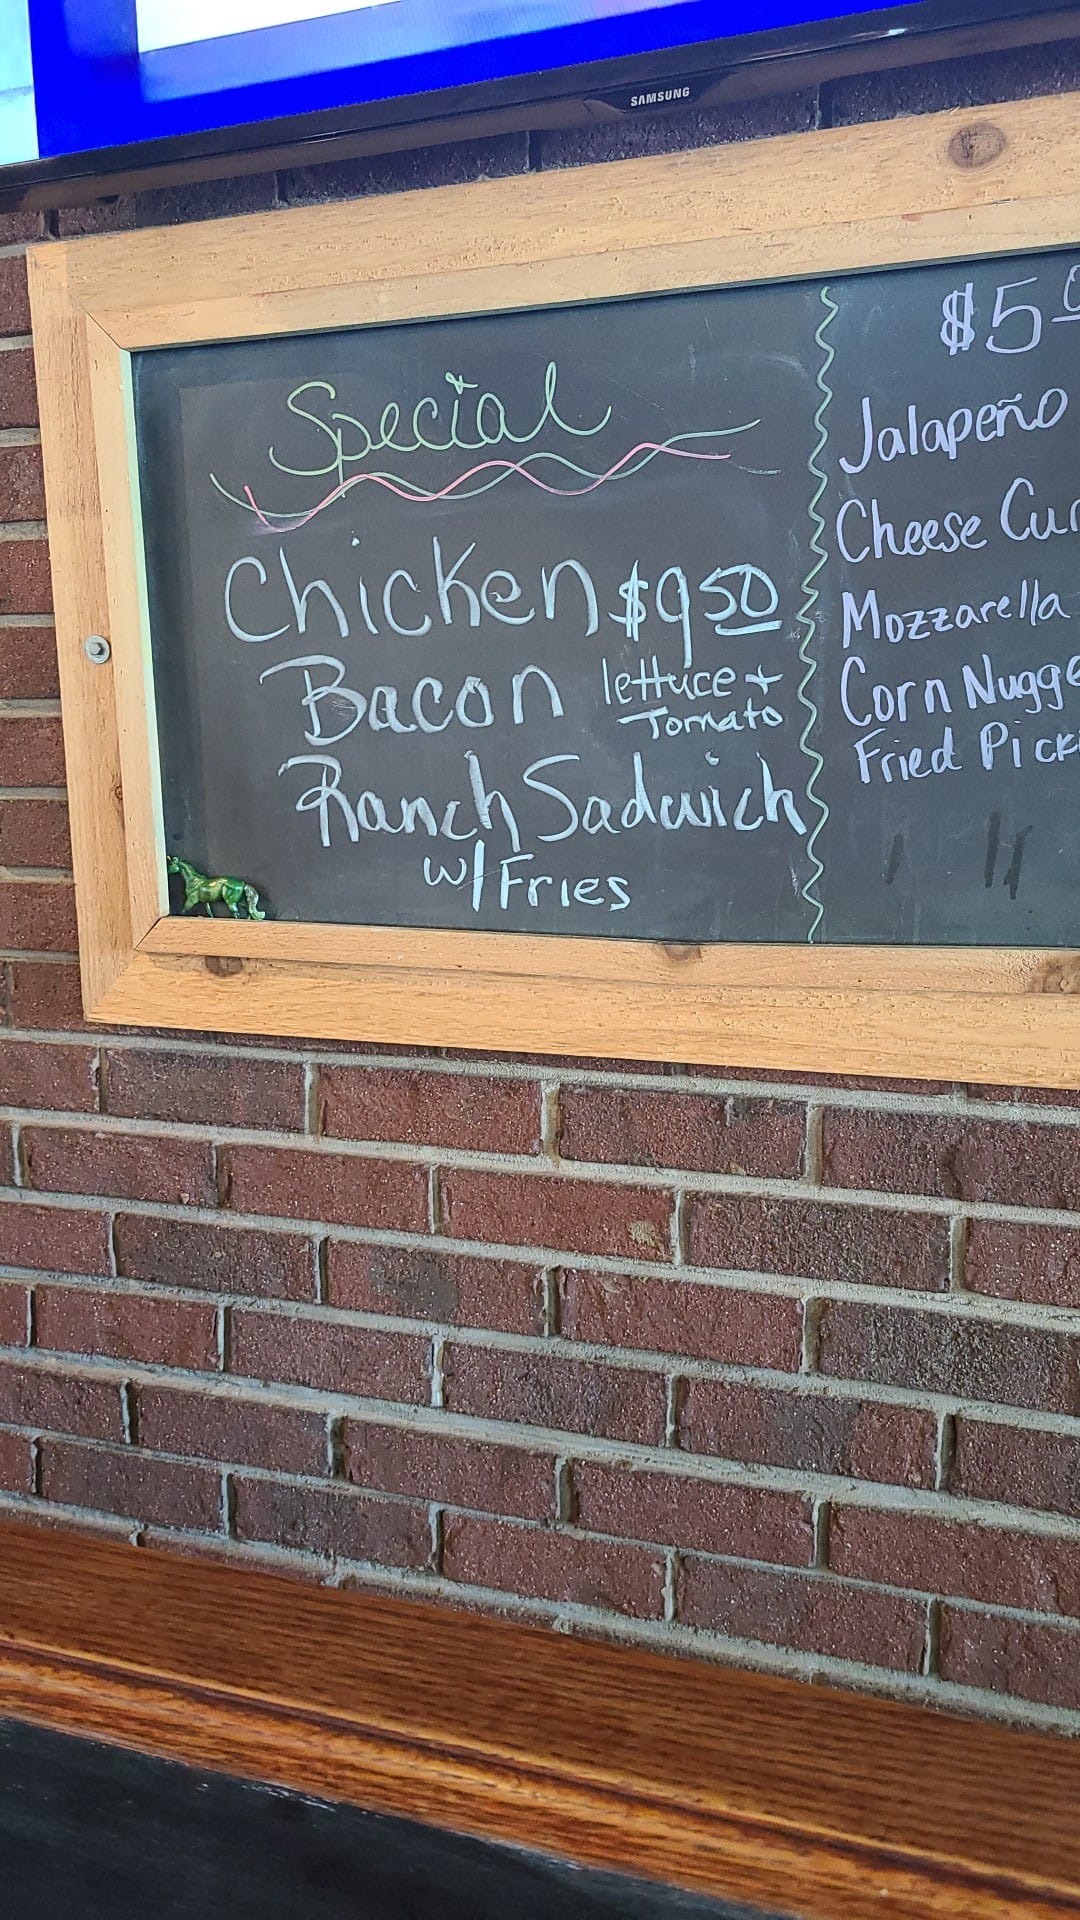 SAMSUNG
Special
Chicken $9 50
Bacon lettuce +
Tomato
Ranch Sadwich
w/ Fries
$5
Jalapeño
Cheese
Mozzarella
Corn
Fried